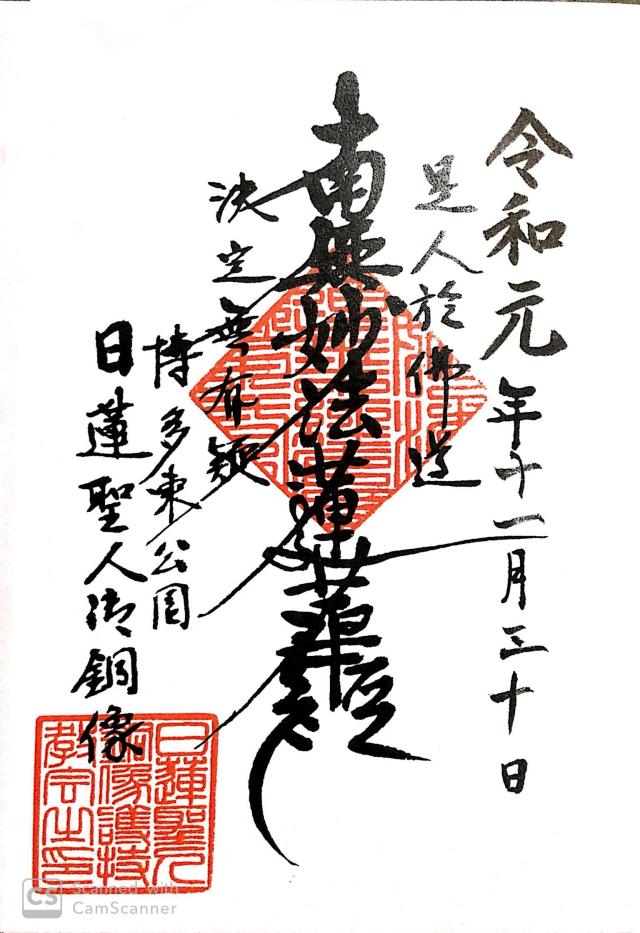 令和元年十一月三十日
是人於佛道
南無妙法蓮華経
決定無有疑
博多東公園
日蓮聖人御銅像
日蓮聖人
銅像護持
教会之印
CS Scanned with
CamScanner